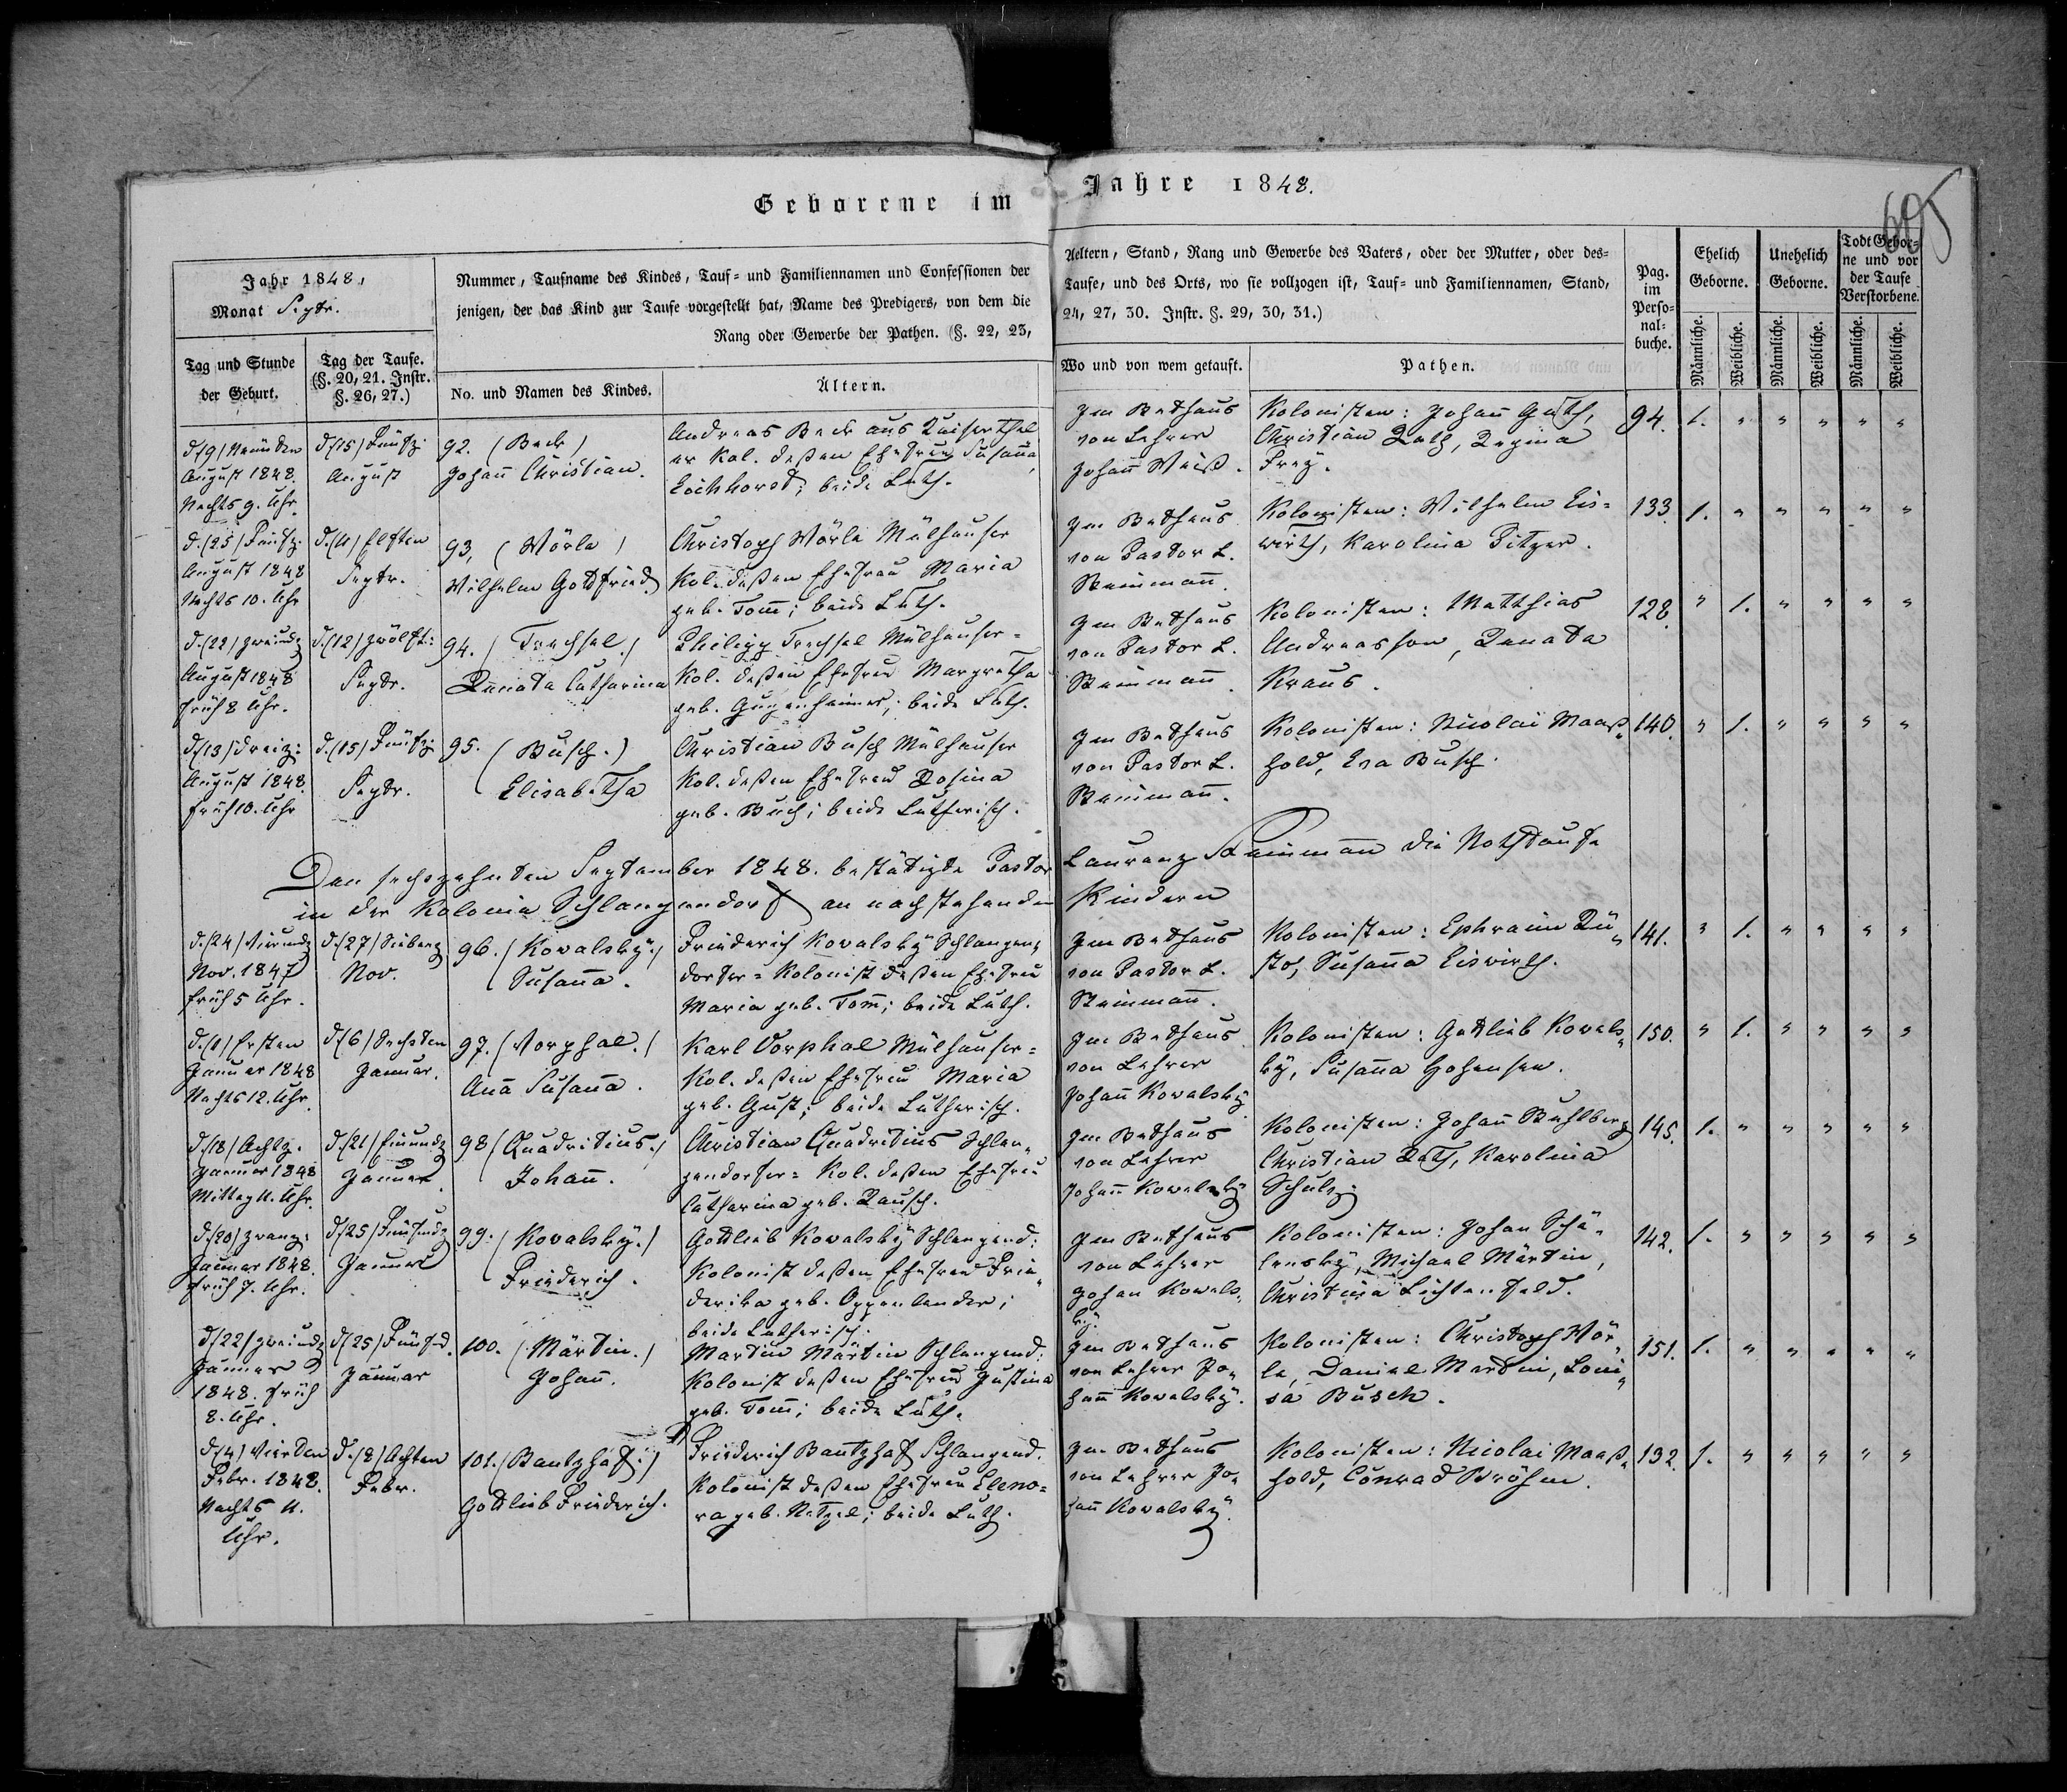 Geborene im Jahre 1848.
605
Jahr 1848,
Monat Septr.
Nummer, Taufname des Kindes, Tauf- und Familiennamen und Confessionen der Aeltern, Stand, Rang und Gewerbe des Vaters, oder der Mutter, oder des-
jenigen, der das Kind zur Taufe vorgestellt hat, Name des Predigers, von dem die Taufe, und des Orts, wo sie vollzogen ist, Tauf- und Familiennamen, Stand,
Rang oder Gewerbe der Pathen. (§. 22, 23, 24, 27, 30. Instr. §. 29, 30, 31.)
Pag. im Perso-nal-buche.
Ehelich Geborne.
Unehelich Geborne.
Todt Gebor-ne und vor der Taufe Verstorbene.
Tag und Stunde der Geburt.
Tag der Taufe. (§. 20, 21. Instr. §. 26, 27.)
No. und Namen des Kindes.
Ältern.
Wo und von wem getauft.
Pathen.
Männliche.
Weibliche.
Männliche.
Weibliche.
Männliche.
Weibliche.
d. (9) Neunten
August 1848.
Nachts 9. Uhr.
d. (15) Fünfz:
August
92. (Beck)
Johañ Christian.
Andreas Beck aus Kaiserthal
er Kol. deßen Ehefrau Susaña
Eichhorst; beide Luth.
Im Bethaus
von Lehrer
Johañ Weiß.
Kolonisten: Johañ Guth,
Christian Rath, Regina
Frey.
94. 1. " " " " "
d. (25) Fünfz.
August 1848
Nachts 10. Uhr
d. (11) Elften
Septr.
93, (Wörle)
Wilhelm Gottfried.
Christoph Wörle Mülhauser
Kol. deßen Ehefrau Maria
geb. Tom̃; beide Luth.
Im Bethaus
von Pastor L.
Steinmañ.
Kolonisten: Wilhelm Eis-
wirth, Karolina Pitzer.
133. 1. " " " " "
d. (22) zweiundz
August 1848
früh 8 Uhr.
d. (12) zwölft:
Septr.
94. (Trechsel.)
Renata Catharina
Philipp Trechsel Mülhauser-
Kol. deßen Ehefrau Margretha
geb. Gugenheimer; beide Luth.
Im Bethaus
von Pastor L.
Steinmañ.
Kolonisten: Matthias
Andreasson, Renata
Kraus.
128. " 1. " " " "
d. (13) dreiz:
August 1848.
früh 10. Uhr
d. (15) Fünfz:
Septr.
95. (Busch.)
Elisabetha
Christian Busch Mülhauser
Kol. deßen Ehefrau Rosina
geb. Buch; beide Lutherisch.
Im Bethaus
von Pastor L.
Steinmañ.
Kolonisten: Nicolai Maaß-
hold, Eva Busch.
140. " 1. " " " "
Den sechszehnten September 1848. bestätigte Pastor Laurenz Steinmañ die Nothtaufe
in der Kolonie Schlangendorf an nachstehenden Kindern
d. (24) Vierundz
Nov. 1847
früh 5 Uhr.
d. (27) Siebenz
Nov.
96. (Kowalsky.)
Susaña.
Friederich Kowalsky Schlangen-
dorfer-Kolonist deßen Ehefrau
Maria geb. Tom̃; beide Luth.
Im Bethaus
von Pastor L.
Steinmañ.
Kolonisten: Ephraim
Susaña Eiswirth.
141. " 1. " " " "
d. (1) Ersten
Januar 1848
Nachts 12. Uhr.
d. (6) Sechsten
Januar.
97. (Vorphal.)
Aña Susaña.
Karl Vorphal Mülhauser-
Kol. deßen Ehefrau Maria
geb. Gust; beide Lutherisch.
Im Bethaus
von Lehrer
Johañ Kowalsky.
Kolonisten: Gottlieb Kowals-
ky, Susaña Hohensee.
150. " 1. " " " "
d. (18) Achtz.
Januar 1848
Mittag 11. Uhr.
d. (21) Einundz
Januar
98 (Quadritius.)
Johañ.
Christian Quadritius Schlan-
gendorfer-Kol. deßen Ehefrau
Catharina geb. Rausch.
Im Bethaus
von Lehrer
Johañ Kowalsky
Kolonisten: Johañ Stuhlberg
Christian Rath, Karolina
Schulz.
145. 1. " " " " "
d. (20) zwanz:
Januar 1848.
früh 7. Uhr.
d. (25) Fünfundz
Januar
99. (Kowalsky.)
Friederich.
Gottlieb Kowalsky Schlangend:
Kolonist deßen Ehefrau Frie-
derika geb. Oppenlender;
beide Lutherisch.
Im Bethaus
von Lehrer
Johan Kowals-
ky.
Kolonisten: Johan Schä-
lensky, Michael Märtin,
Christina Lichtenfeld.
142. 1. " " " " "
d. (22) zweiundz
Januar
1848. früh
8. Uhr.
d. (25) Fünfund.
Januar
100. (Märtin.)
Johañ.
Martin Märtin Schlangend:
Kolonist deßen Ehefrau Justina
geb. Tom̃; beide Luth.
Im Bethaus
von Lehrer Jo-
hañ Kowalsky.
Kolonisten: Christoph Wör-
le, Daniel Martin, Loui-
sa Busch.
151. 1. " " " " "
d. (4) Vierten
Febr. 1848.
Nachts 11.
Uhr.
d. (8) Achten
Febr.
101. (Bantzhaf.)
Gottlieb Friederich.
Friederich Bantzhaf Schlangend.
Kolonist deßen Ehefrau Eleno-
ra geb. Netzel; beide Luth.
Im Bethaus
von Lehrer Jo-
hañ Kowalsky.
Kolonisten: Nicolai Maaß-
hold, Conrad Bröhm.
132. 1. " " " " "